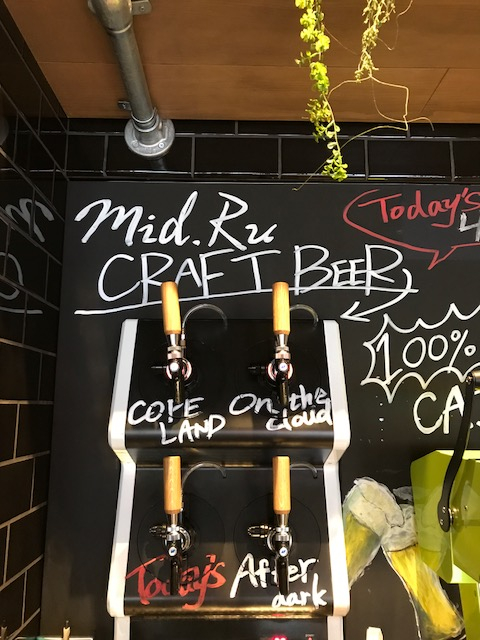 Mid.Ru
CRAFT BEER
Today's
4
100%
CA
COPE
LAND
On the
cloud
Today's
After
dark